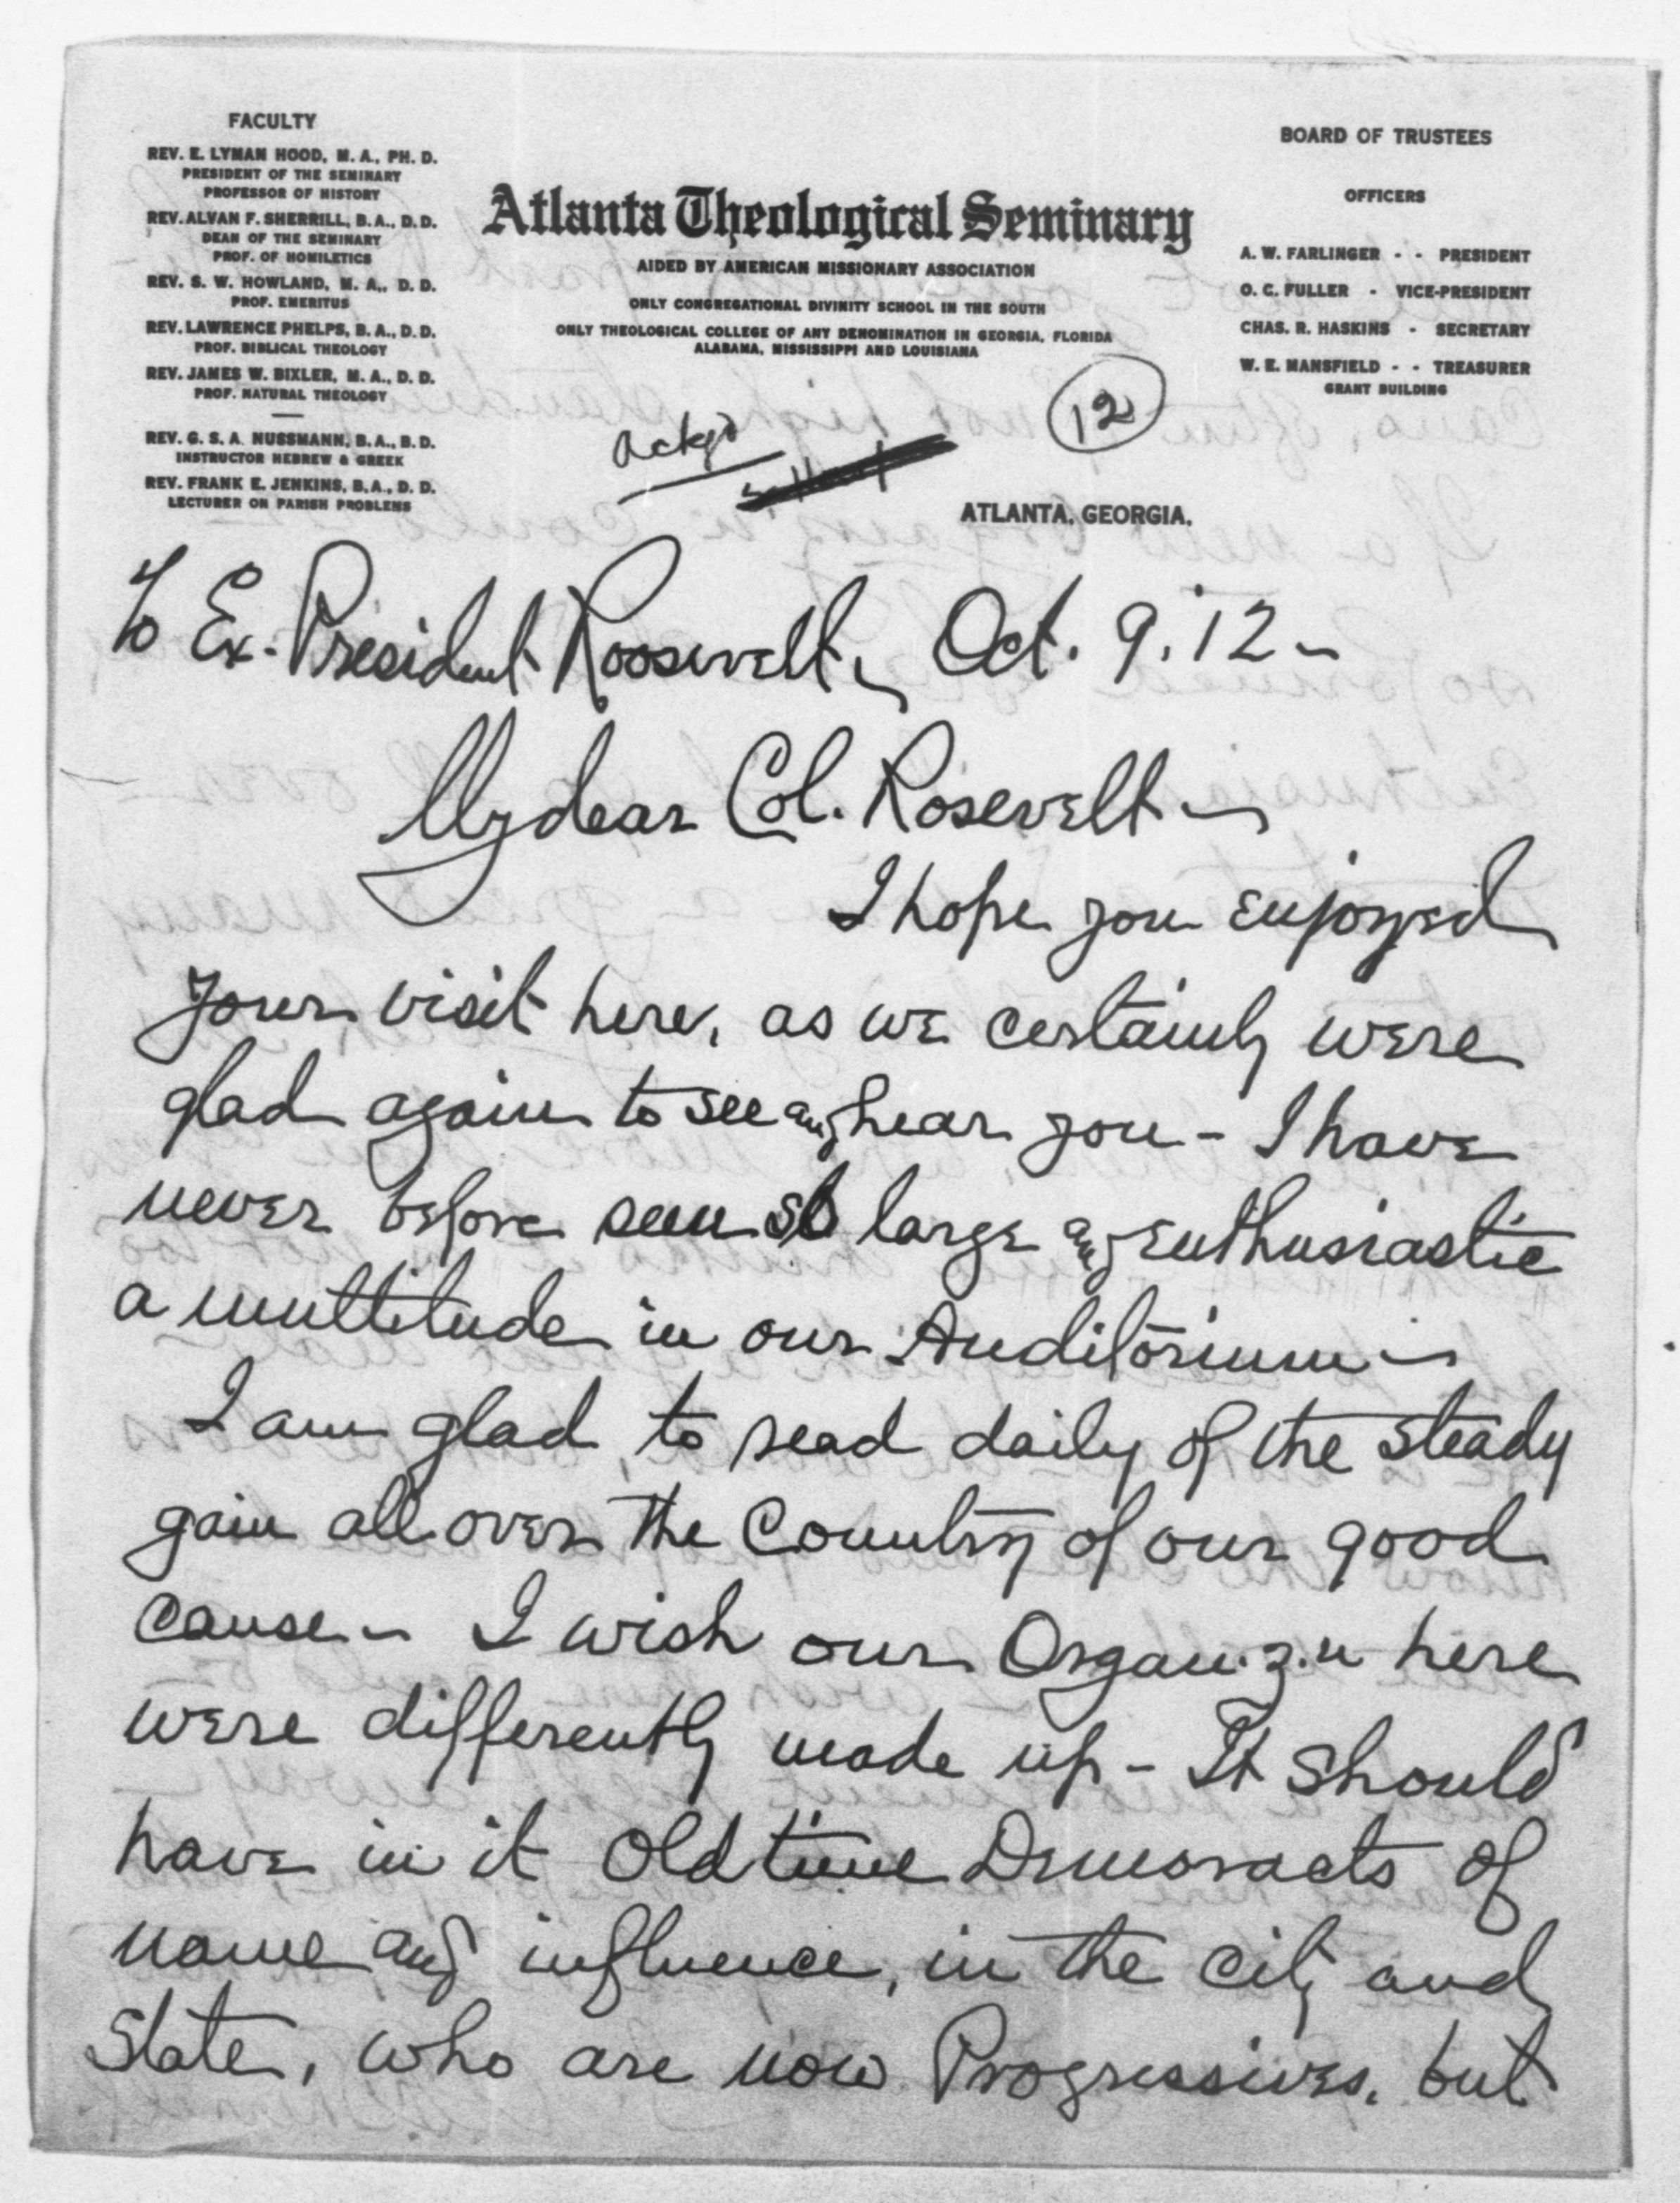 FACULTY
REV. E. LYMAN HOOD, M. A., PH. D.
PRESIDENT OF THE SEMINARY
PROFESSOR OF HISTORY
REV. ALVAN F. SHERRILL, B. A., D. D.
DEAN OF THE SEMINARY
PROF. OF HOMILETICS
REV. S. W. HOWLAND, M. A., D. D.
PROF. EMERITUS
REV. LAWRENCE PHELPS, B. A., D. D.
PROF. BIBLICAL THEOLOGY
REV. JAMES W. BIXLER, M. A., D. D.
PROF. NATURAL THEOLOGY
REV. G. S. A. NUSSMANN, B. A., B. D.
INSTRUCTOR HEBREW & GREEK
REV. FRANK E. JENKINS, B. A., D. D.
LECTURER ON PARISH PROBLEMS
Atlanta Theological Seminary
AIDED BY AMERICAN MISSIONARY ASSOCIATION
ONLY CONGREGATIONAL DIVINITY SCHOOL IN THE SOUTH
ONLY THEOLOGICAL COLLEGE OF ANY DENOMINATION IN GEORGIA, FLORIDA
ALABAMA, MISSISSIPPI AND LOUISIANA
BOARD OF TRUSTEES
OFFICERS
A. W. FARLINGER - - PRESIDENT
O. C. FULLER - VICE-PRESIDENT
CHAS. R. HASKINS - SECRETARY
W. E. MANSFIELD - - TREASURER
GRANT BUILDING
12
Ackgd
ATLANTA, GEORGIA.
To Ex-President Roosevelt, Oct. 9. '12 -
My dear Col. Rosevelt -
I hope you enjoyed
your visit here, as we certainly were
glad again to see and hear you - I have
never before seen so large and enthusiastic
a multitude in our Auditorium -
I am glad to read daily of the steady
gain all over the Country of our good
cause - I wish our Organ.z.n here
were differently made up - It should
have in it Old time Democrats of
name and influence, in the city and
State, who are now Progressives, but